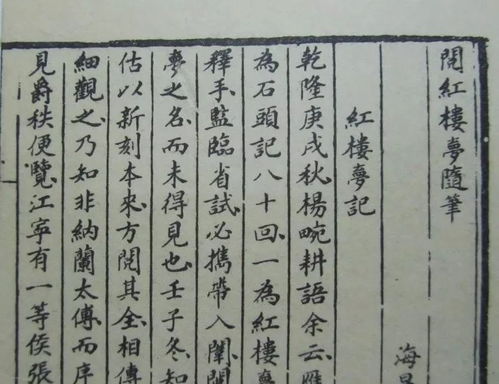 閱紅樓夢隨筆
海
紅樓夢記
乾隆庚戌秋楊畹耕語余云雁
為石頭記八十回一為紅樓夢
釋手監臨省試必攜帶入闈闈
夢之名而未得見也壬子冬知
估以新刻本來方閱其全相傳
細觀之乃知非納蘭太傅而序
見爵秩便覽江寧有一等侯張